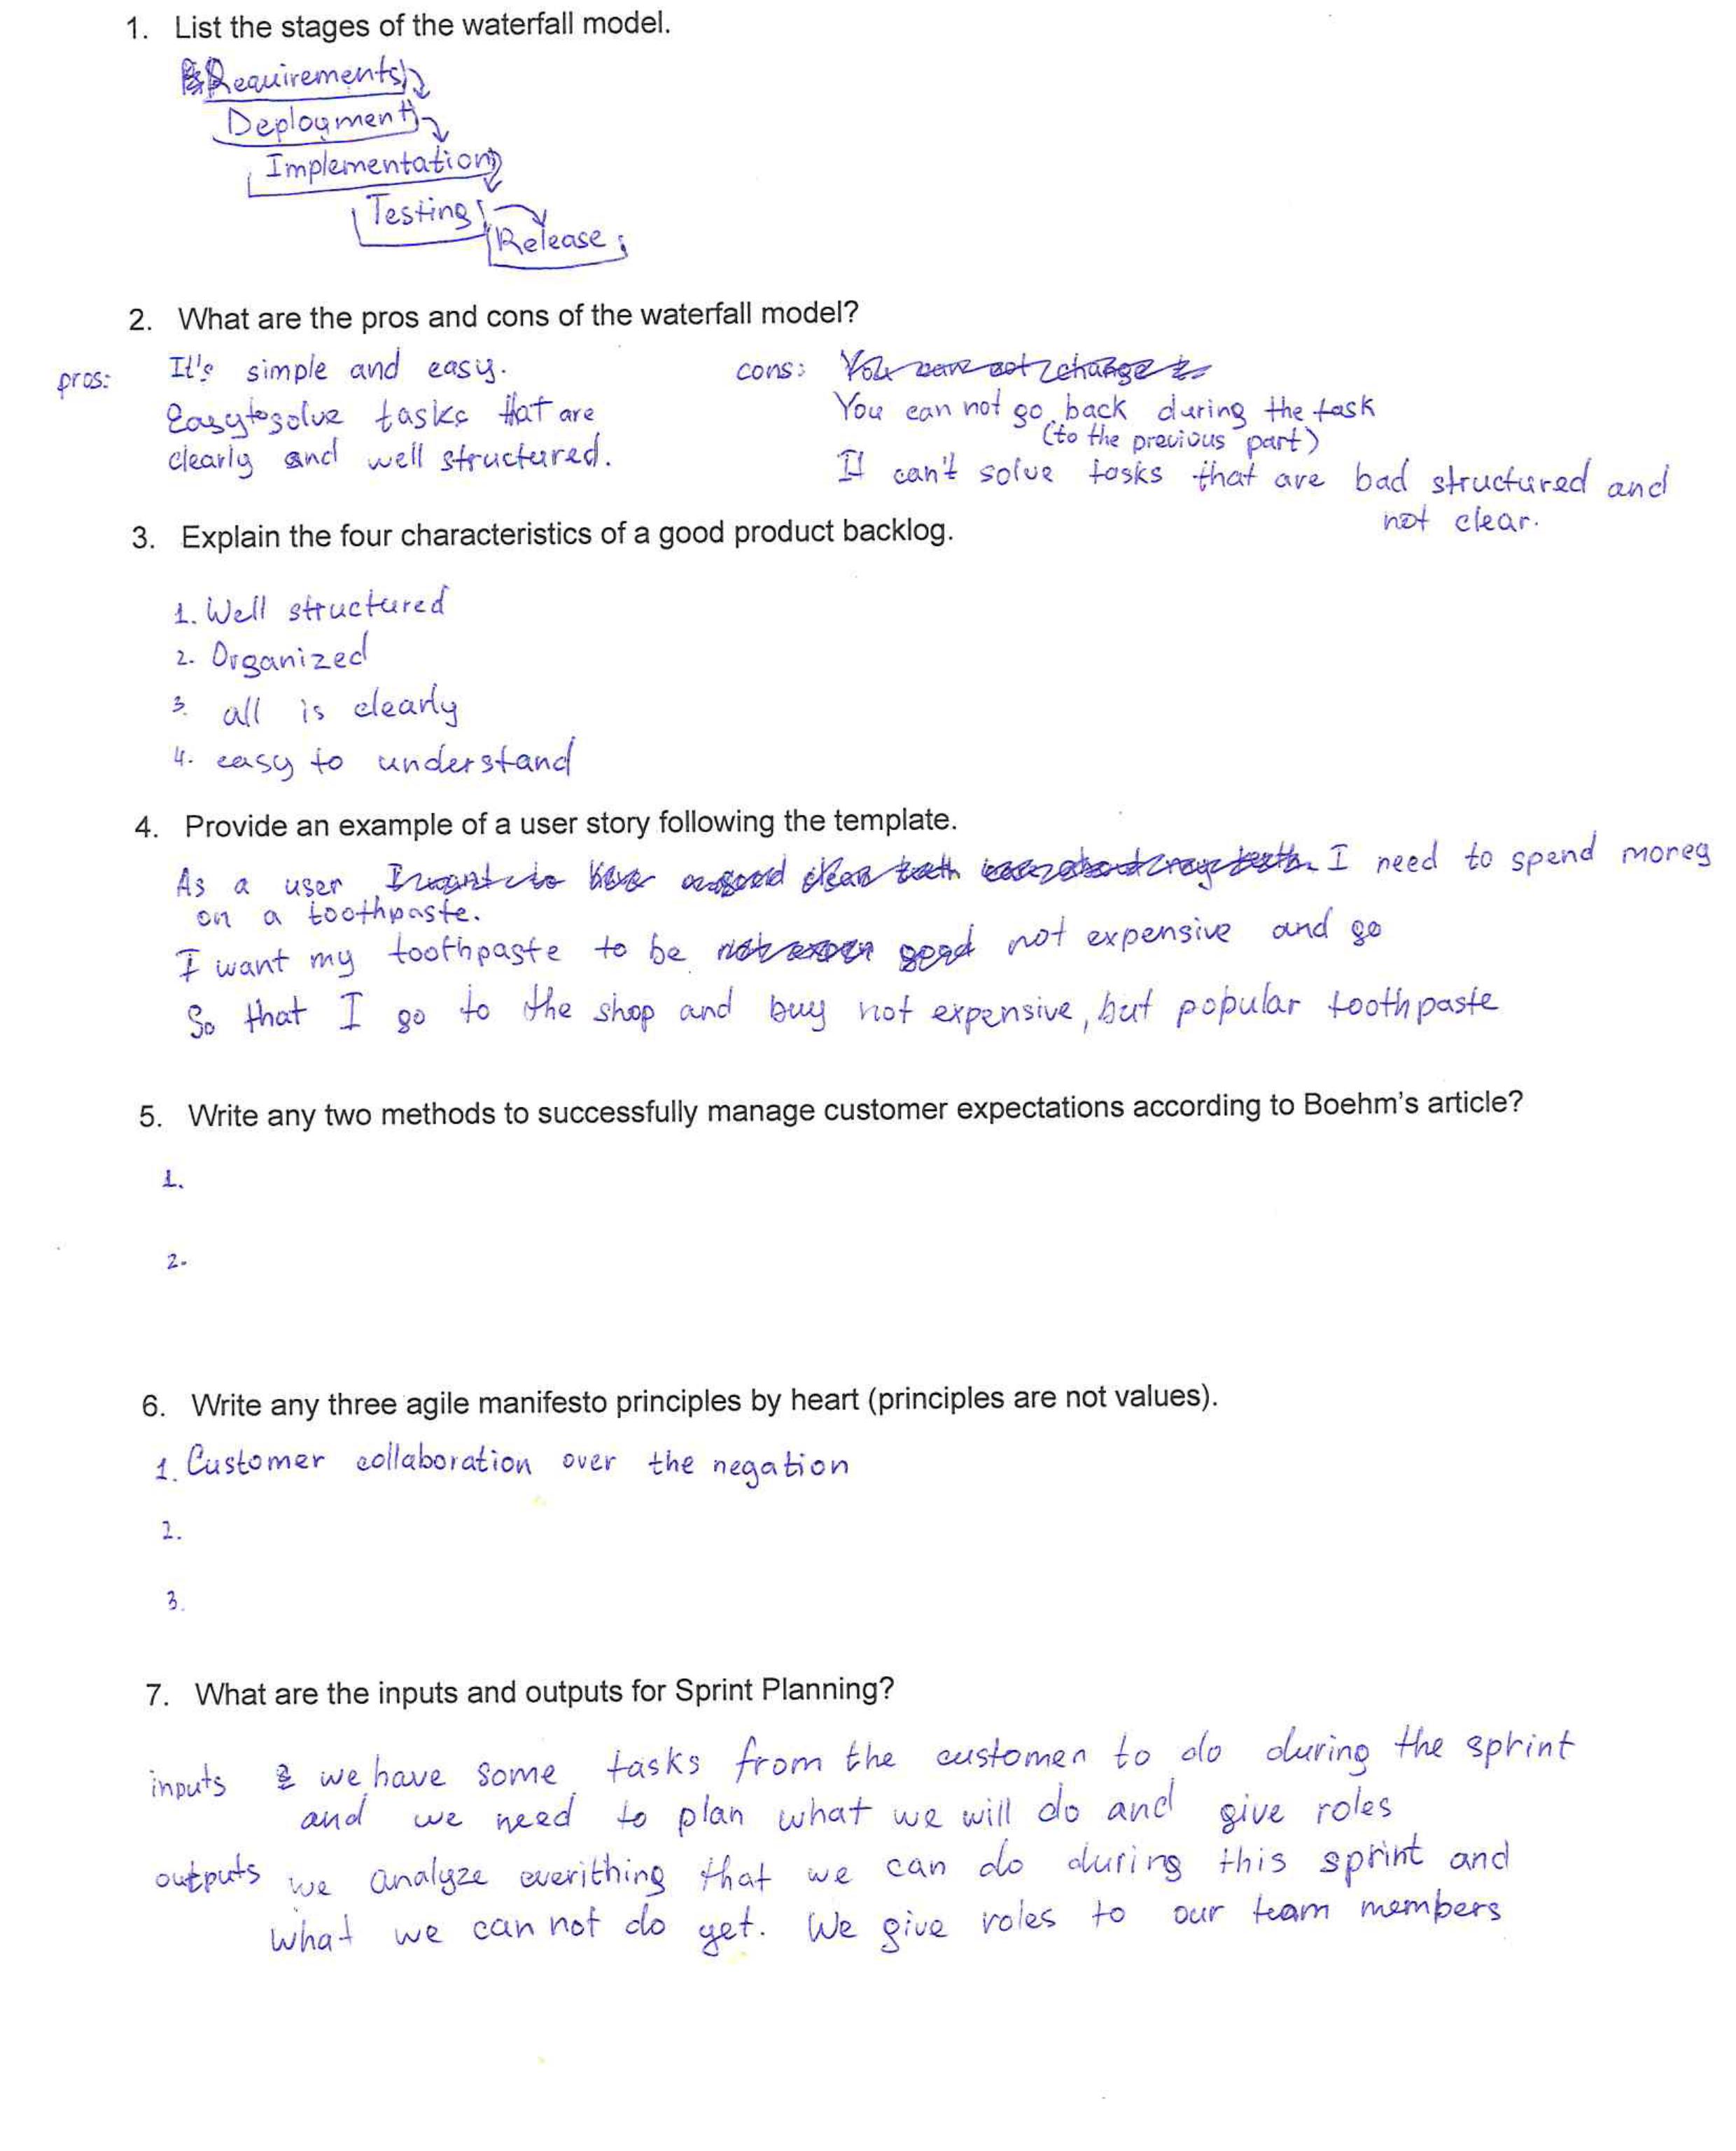 1. List the stages of the waterfall model.
Requirements
Deployment
Implementation
Testing
Release
2. What are the pros and cons of the waterfall model?
pros: It's simple and easy.
Easy to solve tasks that are
clearly and well structured.
cons: You can not change
You can not go back during the task
(to the previous part)
It can't solve tasks that are bad structured and
not clear.
3. Explain the four characteristics of a good product backlog.
1. Well structured
2. Organized
3. all is clearly
4. easy to understand
4. Provide an example of a user story following the template.
As a user I need to spend money
on a toothpaste.
I want my toothpaste to be good not expensive and go
So that I go to the shop and buy not expensive, but popular toothpaste
5. Write any two methods to successfully manage customer expectations according to Boehm's article?
1.
2.
6. Write any three agile manifesto principles by heart (principles are not values).
1. Customer collaboration over the negation
2.
3.
7. What are the inputs and outputs for Sprint Planning?
inputs we have some tasks from the customer to do during the sprint
and we need to plan what we will do and give roles
outputs we analyze everithing that we can do during this sprint and
what we can not do yet. We give roles to our team members